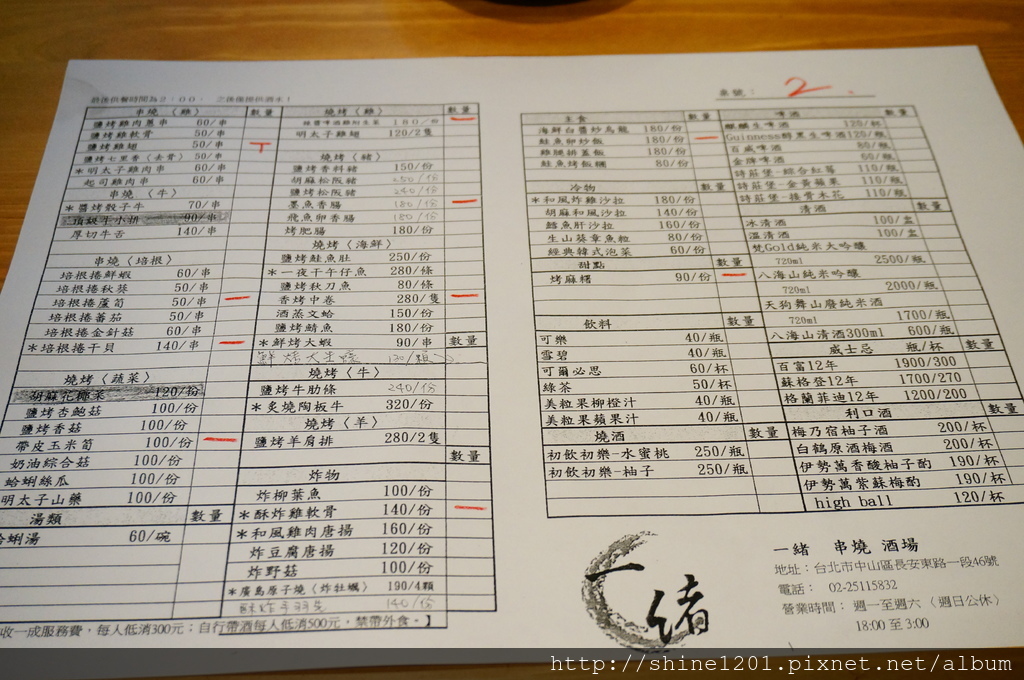 最後供餐時間為2:00.
串燒（雞） 數量
鹽烤雞肉蔥串 60/串
鹽烤雞軟骨 50/串
鹽烤雞翅 50/串
鹽烤七里香（去骨） 50/串
*明太子雞肉串 60/串
起司雞肉串 60/串
串燒（牛）
*醬烤骰子牛 70/串
頂級牛小排 90/串
厚切牛舌 140/串
串燒（培根）
培根捲鮮蝦 60/串
培根捲秋葵 50/串
培根捲蘆筍 50/串
培根捲蕃茄 50/串
培根捲金針菇 60/串
*培根捲干貝 140/串
燒烤（蔬菜）
胡麻花椰菜 120/份
鹽烤杏鮑菇 100/份
鹽烤香菇 100/份
帶皮玉米筍 100/份
奶油綜合菇 100/份
蛤蜊絲瓜 100/份
明太子山藥 100/份
湯類 數量
蛤蜊湯 60/碗
燒烤（雞） 數量
180/份
明太子雞翅 120/2隻
燒烤（豬）
鹽烤香料豬 150/份
胡麻松阪豬 250/份
鹽烤松阪豬 240/份
墨魚香腸 180/份
飛魚卵香腸 180/份
烤肥腸 180/份
燒烤（海鮮）
鹽烤鮭魚肚 250/份
*一夜干午仔魚 280/條
鹽烤秋刀魚 80/條
香烤中卷 280/隻
酒蒸文蛤 150/份
鹽烤鯖魚 180/份
*鮮烤大蝦 90/串 數量
燒烤（牛）
鹽烤牛肋條 240/份
*炙燒陶板牛 320/份
燒烤（羊）
鹽烤羊肩排 280/2隻
數量
炸物
炸柳葉魚 100/份
*酥炸雞軟骨 140/份
*和風雞肉唐揚 160/份
炸豆腐唐揚 120/份
炸野菇 100/份
*廣島原子燒（炸牡蠣） 190/4顆
140/份
收一成服務費，每人低消300元；自行帶酒每人低消500元，禁帶外食。】
桌號： 2.
主食 數量
海鮮白醬炒烏龍 180/份
鮭魚卵炒飯 180/份
雞腿排蓋飯 180/份
鮭魚烤飯糰 80/份
冷物 數量
*和風鮮蝦沙拉 180/份
胡麻和風沙拉 140/份
鱈魚肝沙拉 160/份
生山葵章魚粒 80/份
經典韓式泡菜 60/份
甜點 數量
烤麻糬 90/份
飲料 數量
可樂 40/瓶
雪碧 40/瓶
可爾必思 60/杯
綠茶 50/杯
美粒果柳橙汁 40/瓶
美粒果蘋果汁 40/瓶
燒酒 數量
初飲初樂-水蜜桃 250/瓶
初飲初樂-柚子 250/瓶
啤酒 數量
麒麟生啤酒 125/杯
Guinness醇黑生啤酒 125/瓶
百威啤酒 80/瓶
金牌啤酒 60/瓶
詩莊堡-綜合紅莓 110/瓶
詩莊堡-金黃蘋果 110/瓶
詩莊堡-桂香木花 110/瓶
清酒 數量
冰清酒 100/盅
溫清酒 100/盅
梵Gold純米大吟釀
720ml 2500/瓶
八海山純米吟釀
720ml 2000/瓶
天狗舞山廢純米酒
720ml 1700/瓶
八海山清酒300ml 600/瓶
威士忌 瓶/杯 數量
百富12年 1900/300
蘇格登12年 1700/270
格蘭菲迪12年 1200/200
利口酒 數量
梅乃宿柚子酒 200/杯
白鶴原酒梅酒 200/杯
伊勢萬香酸柚子酌 190/杯
伊勢萬紫蘇梅酌 190/杯
high ball 120/杯
一緒
一緒 串燒 酒場
地址：台北市中山區長安東路一段46號
電話： 02-25115832
營業時間： 週一至週六（週日公休）
18:00 至 3:00
http://shine1201.pixnet.net/album